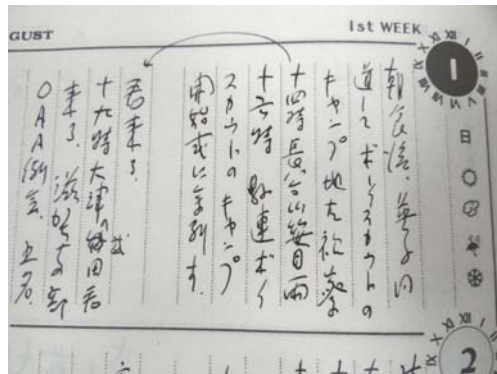 GUST
1st WEEK
1
日
朝食後、英子同
道してボーイスカウトの
キャンプ地を視察
十四時長谷山箕目雨
十六時 県連ボーイ
スカウトのキャンプ
開始式に参列す。
君来る
十九時大津の 田君
来る。滋 の部
OAA例会 五名。
2